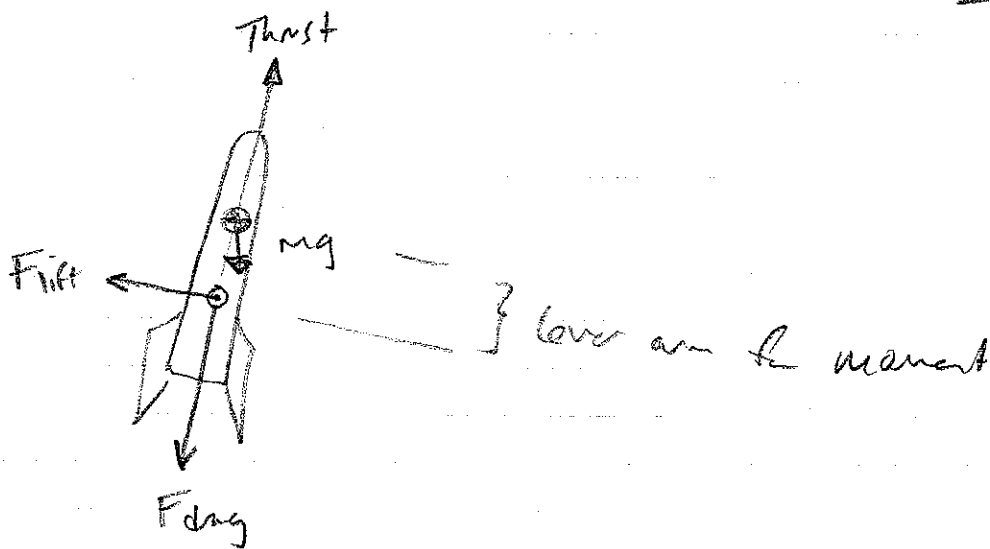 Thrust
mg
Flift
} lever arm for moment
Fdrag